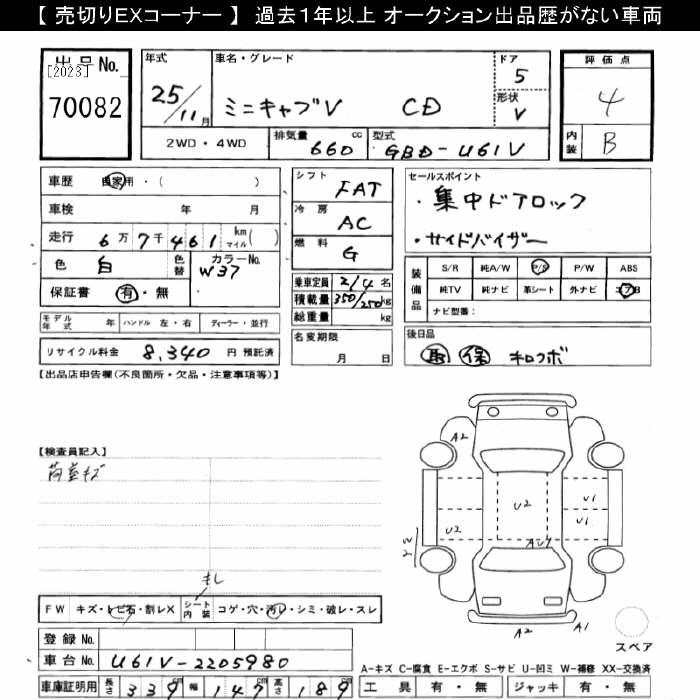 【 売切りEXコーナー 】 過去1年以上 オークション出品歴がない車両
出品 No.
[2023]
70082
年式
25/11月
車名・グレード
ミニキャブV CD
ドア
5
形状
V
評価点
4
内装
B
2WD・4WD
排気量 660 cc
型式 GBD-U61V
車歴 自家用・( )
車検 年 月
走行 6万7千461 km マイル( )
色 白
色替
カラーNo. W37
保証書 有・無
シフト FAT
冷房 AC
燃料 G
乗車定員 2/4名
積載量 350/250kg
総重量 kg
セールスポイント
・集中ドアロック
・サイドバイザー
装備品
S/R 純A/W P/S P/W ABS
純TV 純ナビ 革シート 外ナビ エアB
ナビ型番:
モデル年式 年 ハンドル 左・右 ディーラー・並行
リサイクル料金 8,340 円 預託済
名変期限
月 日
後日品
取 保 キロクボ
【出品店申告欄(不良箇所・欠品・注意事項等)】
【検査員記入】
荷室キズ
A2
U2
U1
U1
U2
W2
AU1
A2
A1
スペア
モレ
FW キズ・トビ石・割レX
シート内装 コゲ・穴・汚レ・シミ・破レ・スレ
登録 No.
車台 No. U61V-2205980
車庫証明用 長さ 339cm 幅 147cm 高さ 189cm
A-キズ C-腐食 E-エクボ S-サビ U-凹ミ W-補修 XX-交換済
工具 有・無 ジャッキ 有・無